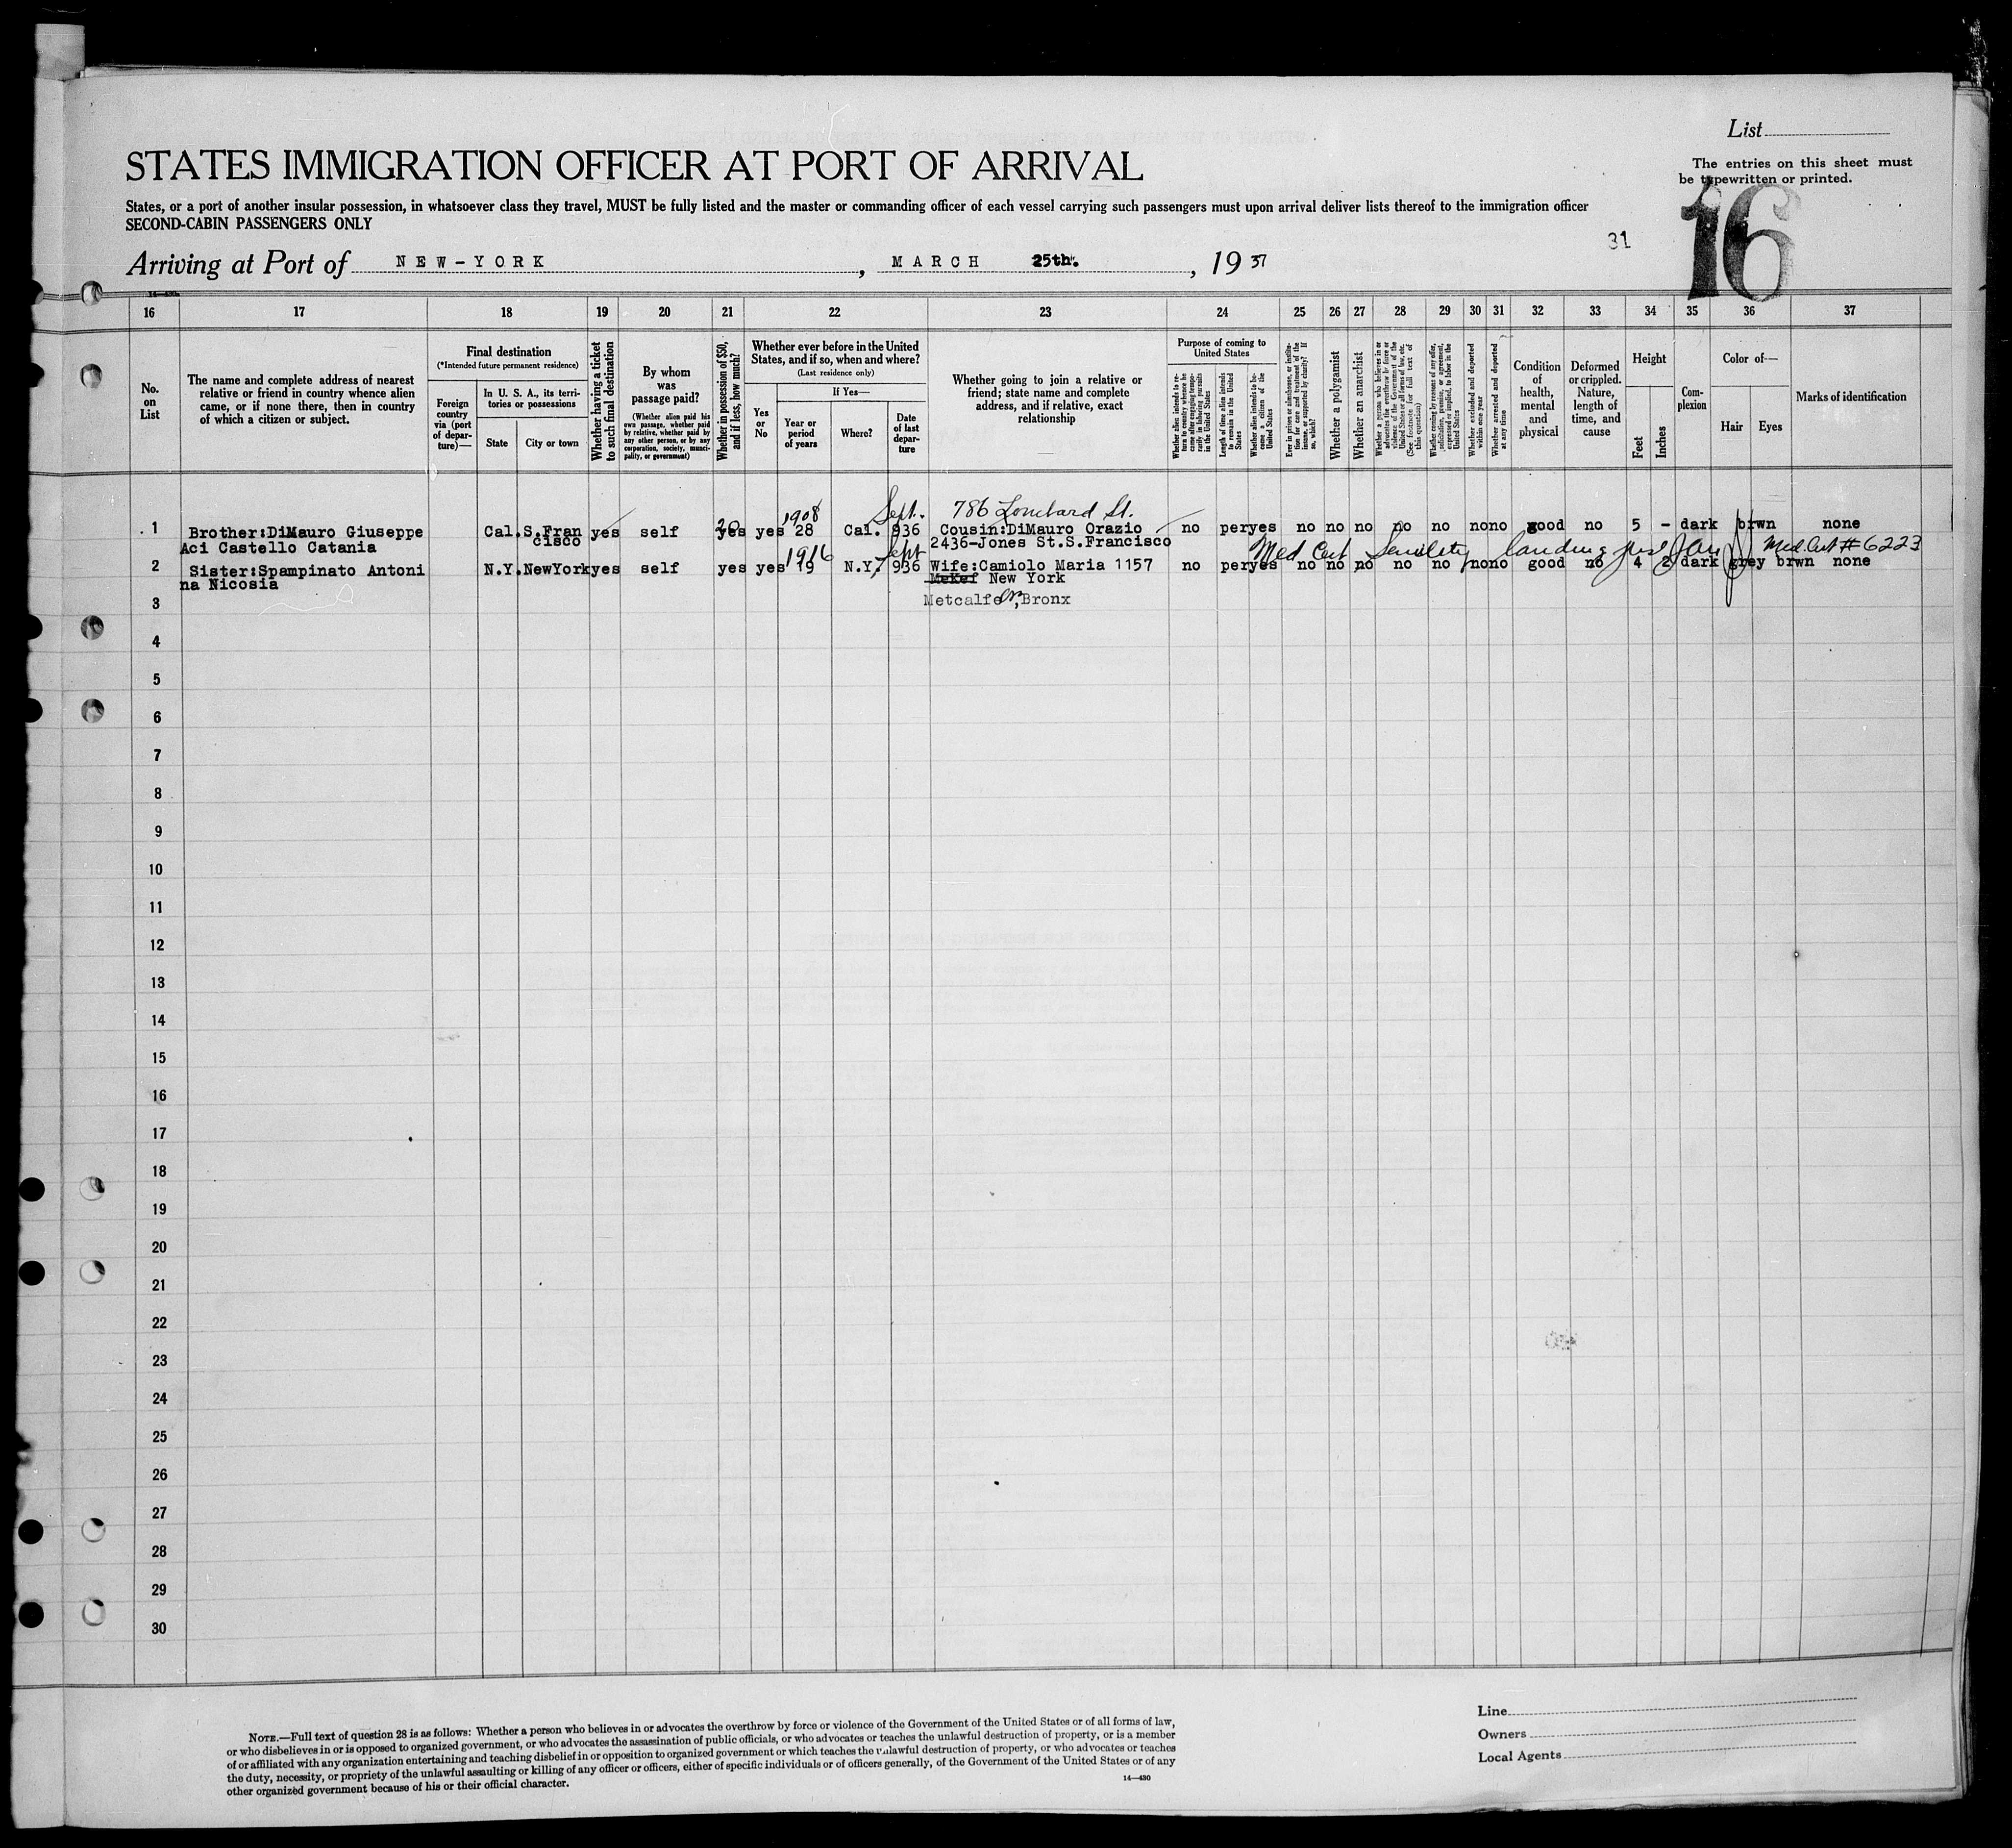 List
STATES IMMIGRATION OFFICER AT PORT OF ARRIVAL
The entries on this sheet must
be typewritten or printed.
States, or a port of another insular possession, in whatsoever class they travel, MUST be fully listed and the master or commanding officer of each vessel carrying such passengers must upon arrival deliver lists thereof to the immigration officer
SECOND-CABIN PASSENGERS ONLY
16
31
Arriving at Port of NEW-YORK, MARCH 25th., 1937
16 17 18 19 20 21 22 23 24 25 26 27 28 29 30 31 32 33 34 35 36 37
No. on List
The name and complete address of nearest
relative or friend in country whence alien
came, or if none there, then in country
of which a citizen or subject.
Final destination
(*Intended future permanent residence)
Foreign country via (port of departure)—
In U. S. A., its territories or possessions
State
City or town
Whether having a ticket to such final destination
By whom was passage paid?
(Whether alien paid his own passage, whether paid by relative, whether paid by any other person, or by any corporation, society, municipality, or government)
Whether in possession of $50, and if less, how much?
Whether ever before in the United
States, and if so, when and where?
(Last residence only)
Yes or No
If Yes—
Year or period of years
Where?
Date of last departure
Whether going to join a relative or
friend; state name and complete
address, and if relative, exact
relationship
Purpose of coming to United States
Whether alien intends to return to country whence he came after engaging temporarily in laboring pursuits in the United States
Length of time alien intends to remain in the United States
Whether alien intends to become a citizen of the United States
Ever in prison or almshouse, or institution for care and treatment of the insane, or supported by charity? If so, which?
Whether a polygamist
Whether an anarchist
Whether a person who believes in or advocates the overthrow by force or violence of the Government of the United States or all forms of law, etc. (See footnote for full text of this question)
Whether coming by reason of any offer, solicitation, promise, or agreement, expressed or implied, to labor in the United States
Whether excluded and deported within one year
Whether arrested and deported at any time
Condition of health, mental and physical
Deformed or crippled. Nature, length of time, and cause
Height
Feet
Inches
Complexion
Color of—
Hair
Eyes
Marks of identification
1908 Sept. 786 Lombard St.
1 Brother:DiMauro Giuseppe Cal. S.Fran yes self yes 20 yes 28 Cal. 936 Cousin:DiMauro Orazio no per yes no no no no no no no good no 5 - dark brwn none
Aci Castello Catania cisco 2436-Jones St.S.Francisco
1916 Sept Med Cert Senility landing Med. Cert # 6223
2 Sister:Spampinato Antoni N.Y. NewYork yes self yes yes 19 N.Y. 936 Wife:Camiolo Maria 1157 no per yes no no no no no no no good no 4 2 dark grey brwn none
na Nicosia New York
3 Metcalfe Bronx
4
5
6
7
8
9
10
11
12
13
14
15
16
17
18
19
20
21
22
23
24
25
26
27
28
29
30
NOTE.—Full text of question 28 is as follows: Whether a person who believes in or advocates the overthrow by force or violence of the Government of the United States or of all forms of law,
or who disbelieves in or is opposed to organized government, or who advocates the assassination of public officials, or who advocates or teaches the unlawful destruction of property, or is a member
of or affiliated with any organization entertaining and teaching disbelief in or opposition to organized government or which teaches the unlawful destruction of property, or who advocates or teaches
the duty, necessity, or propriety of the unlawful assaulting or killing of any officer or officers, either of specific individuals or of officers generally, of the Government of the United States or of any
other organized government because of his or their official character.
14—430
Line
Owners
Local Agents